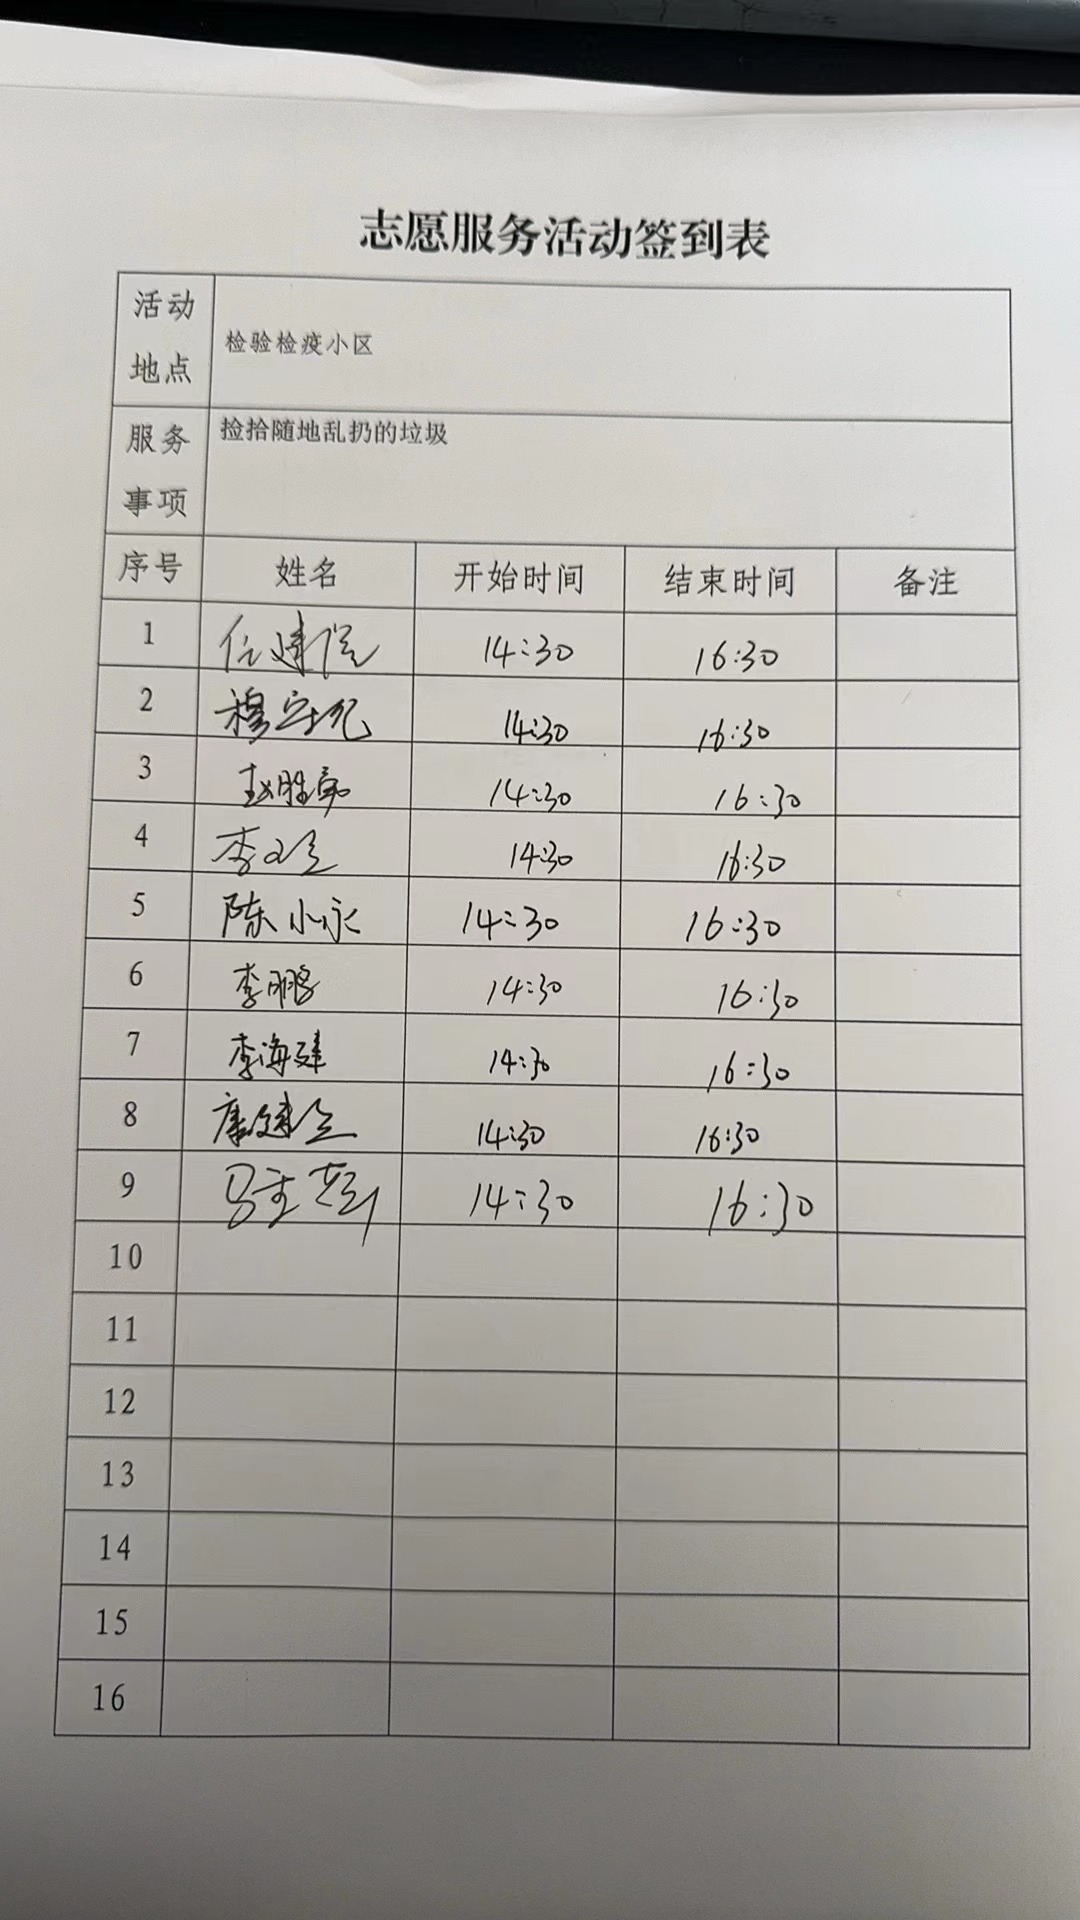 志愿服务活动签到表
活动地点 检验检疫小区
服务事项 捡拾随地乱扔的垃圾
序号 姓名 开始时间 结束时间 备注
1 14:30 16:30
2 14:30 16:30
3 14:30 16:30
4 14:30 16:30
5 陈小永 14:30 16:30
6 李鹏 14:30 16:30
7 李海建 14:30 16:30
8 14:30 16:30
9 14:30 16:30
10
11
12
13
14
15
16